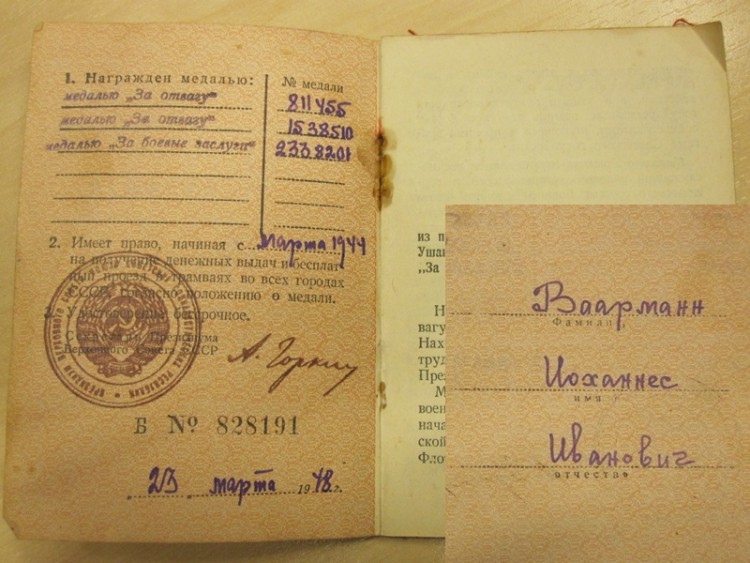 1. Награжден медалью:
№ медали
медалью „За отвагу"
811455
медалью „За отвагу"
1538510
медалью „За боевые заслуги"
2338201
2. Имеет право, начиная с марта 1944
на получение денежных выдач и бесплат
ный проезд в трамваях во всех городах
СССР, согласно положению о медали.
3. Удостоверение бессрочное.
Секретарь Президиума
Верховного Совета СССР
А. Горкин
Б № 828191
23 марта 1948 г.
из п
Ушак
„За
Н
вагу
Нах
труд
Пре
М
воен
нача
ской
Фло
Ваарманн
Фамилия
Иоханнес
имя
Иванович
отчество